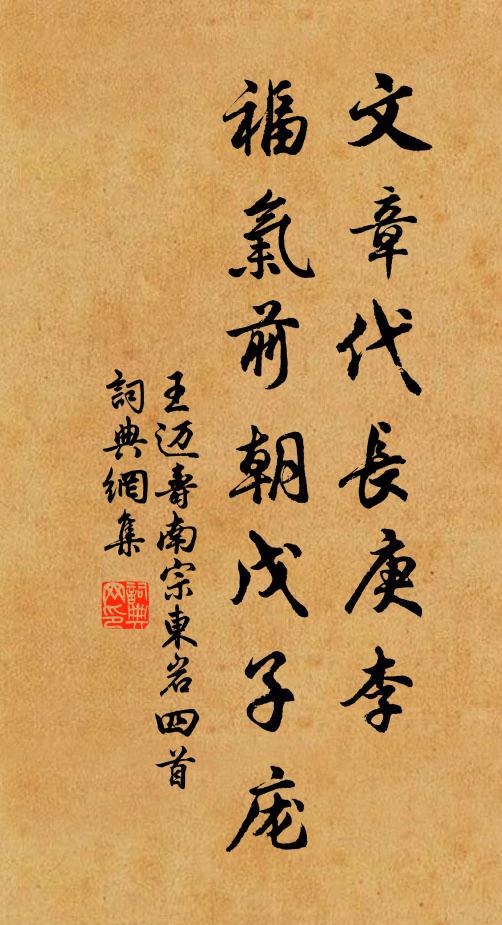 文章代長庚李
福氣前朝戊子庞
王迈壽南宗東岩四首
詞典網集
詞典网印